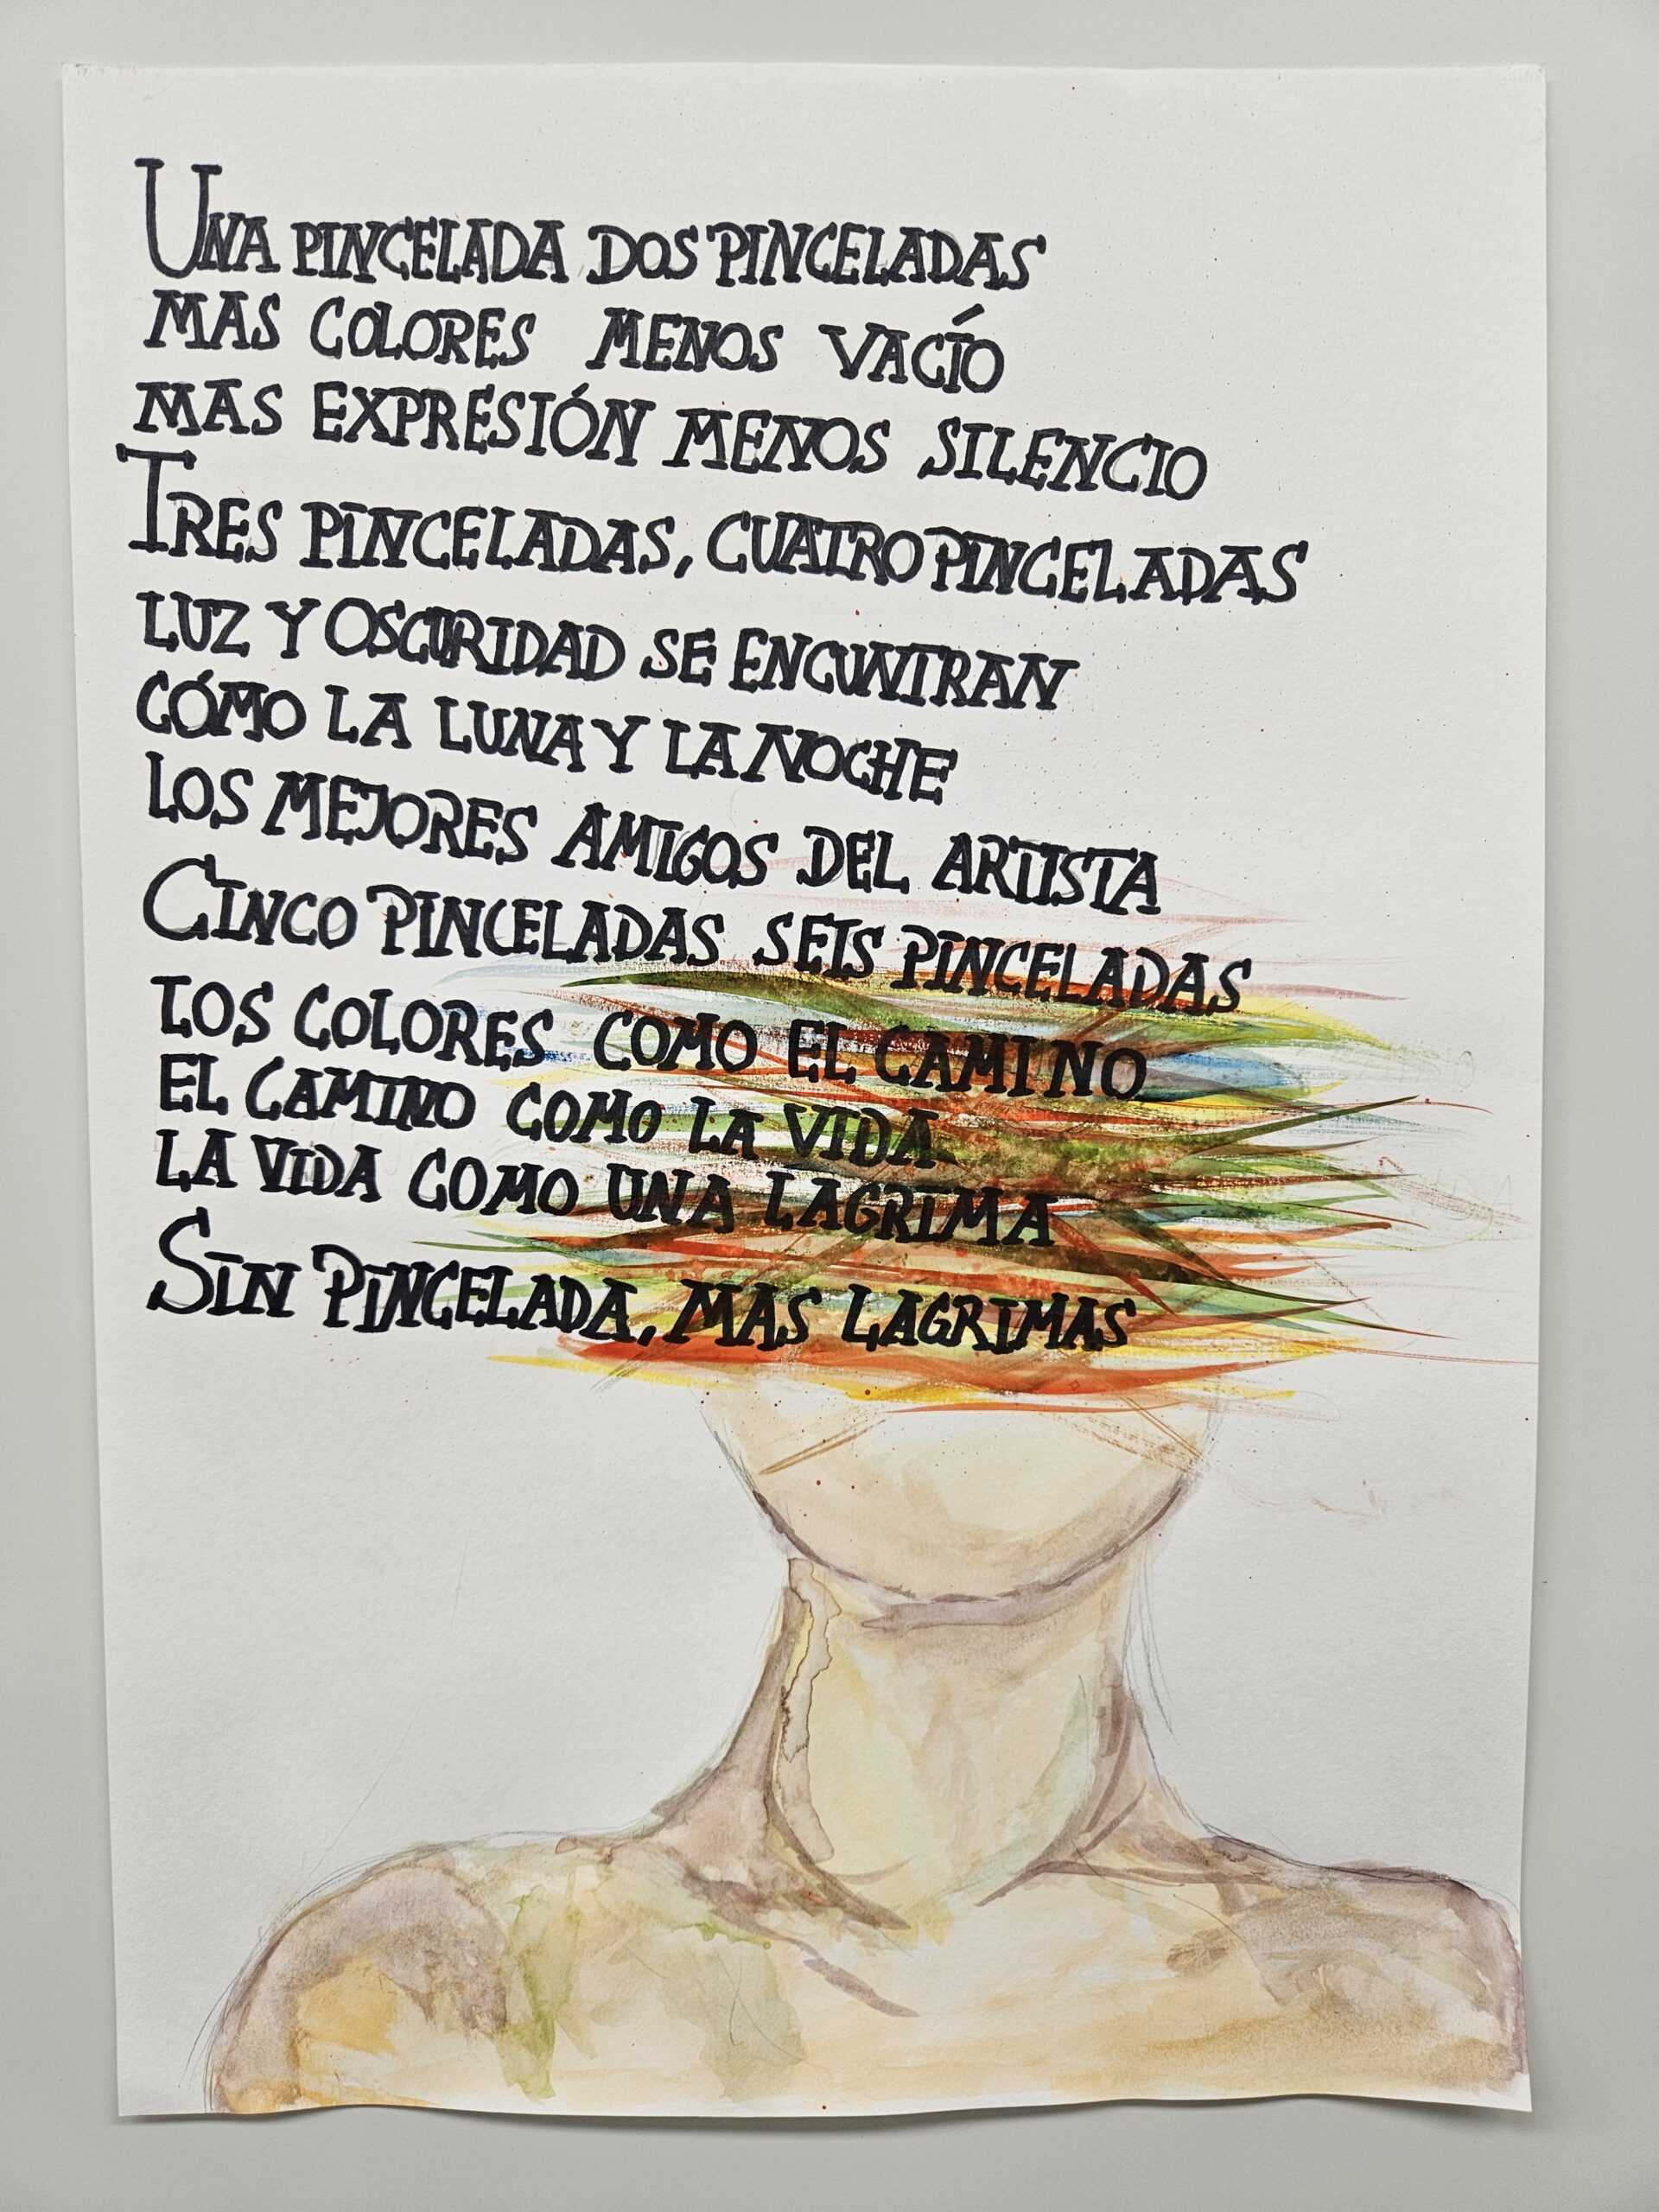 UNA PINCELADA DOS PINCELADAS
MAS COLORES MENOS VACÍO
MAS EXPRESIÓN MENOS SILENCIO
TRES PINCELADAS, CUATRO PINCELADAS
LUZ Y OSCURIDAD SE ENCUNTRAN
CÓMO LA LUNA Y LA NOCHE
LOS MEJORES AMIGOS DEL ARTISTA
CINCO PINCELADAS SEIS PINCELADAS
LOS COLORES COMO EL CAMINO
EL CAMINO COMO LA VIDA
LA VIDA COMO UNA LAGRIMA
SIN PINCELADA, MAS LAGRIMAS